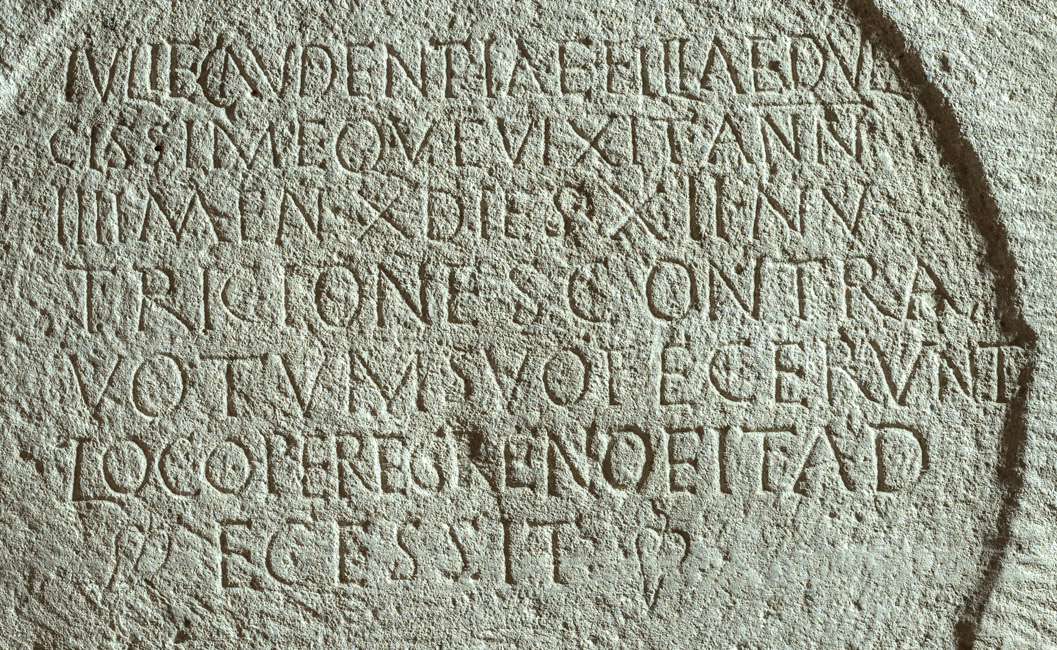 IVLIE GAVDENTIA BELLAE DVL
CISSIME QVE VIXIT ANN
IIII MEN X DIES XII NV
TRICIONES CONTRA
VOTVM SVOI ECERVNT
LOCO PEREGRENO EIT AD
ECESSIT